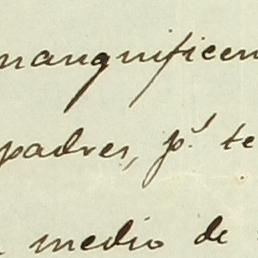 manguificen
padres, p.r te
medio de